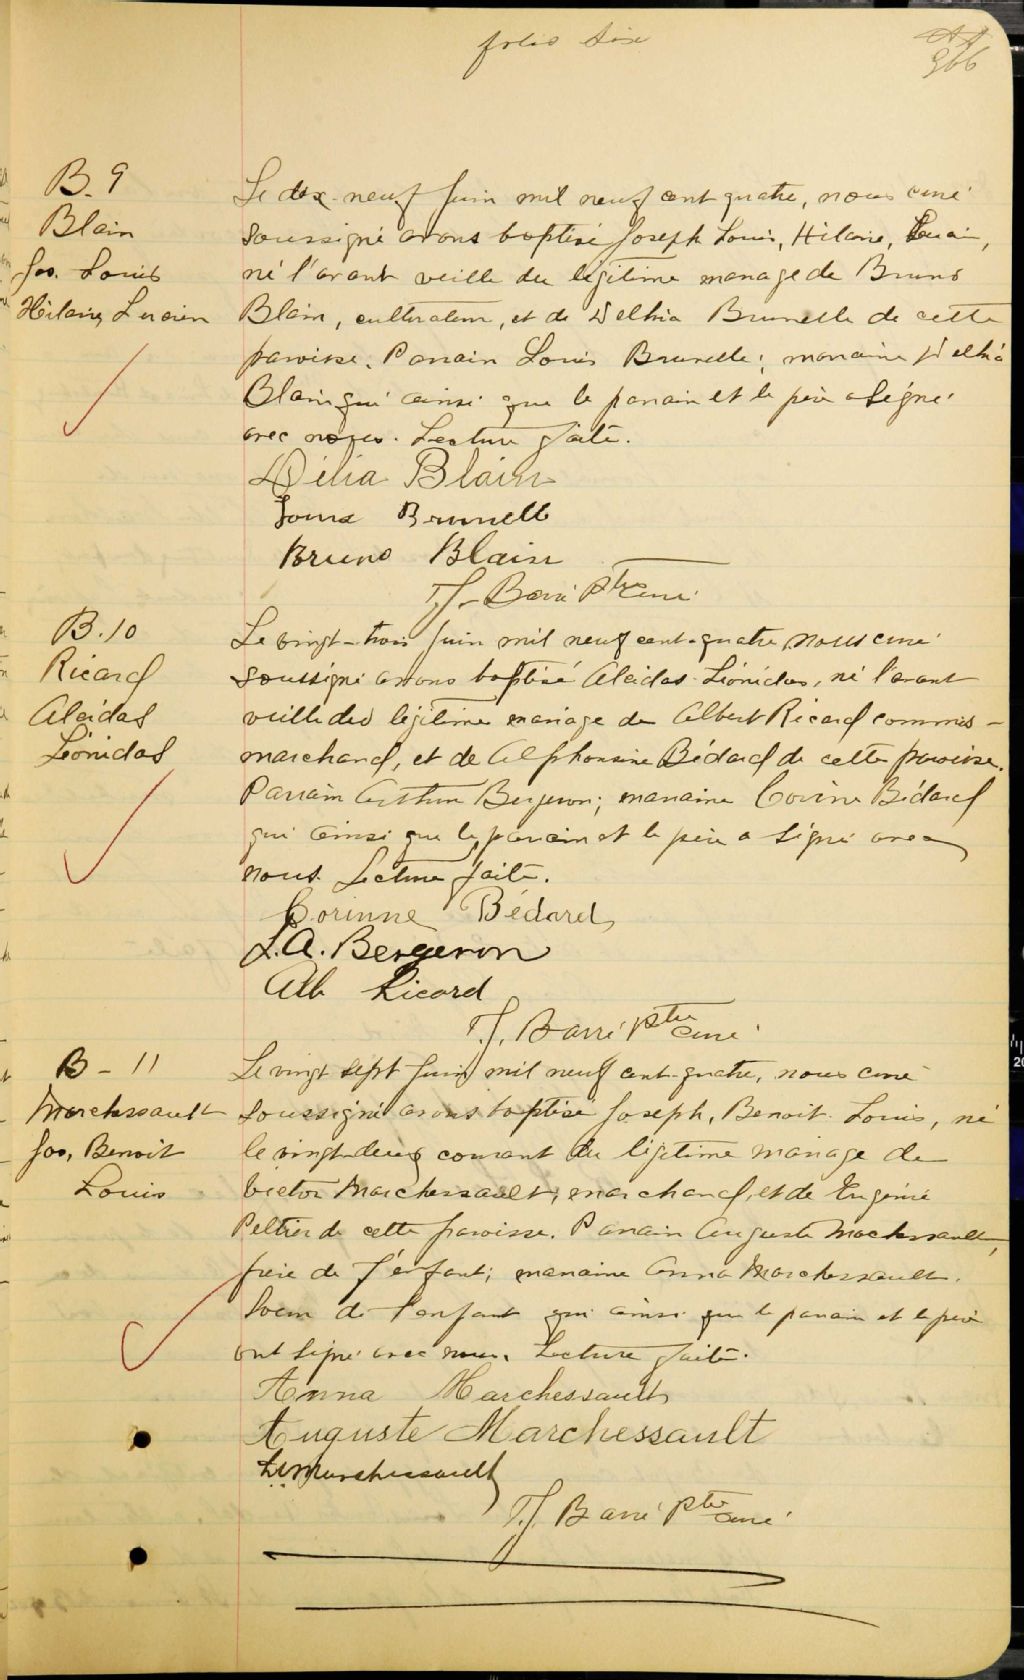 folio six
366
B. 9
Blain
Jos. Louis
Hilaire, Lucien
Le dix-neuf Juin mil neuf cent quatre, nous curé
soussigné avons baptisé Joseph Louis, Hilaire, Lucien,
né l'avant veille du légitime mariage de Bruno
Blain, cultivateur, et de Delhia Brunelle de cette
paroisse. Parrain Louis Brunelle; marraine Delhia
Blain qui ainsi que le parrain et le père a signé
avec nous. Lecture faite.
Délia Blain
Louis Brunelle
Bruno Blain
T.J. Barré Ptre curé
B. 10
Ricard
Alcidas
Léonidas
Le vingt-trois Juin mil neuf cent-quatre, nous curé
soussigné avons baptisé Alcidas Léonidas, né l'avant
veille du légitime mariage de Albert Ricard commis-
marchand, et de Alphonsine Bédard de cette paroisse.
Parrain Arthur Bergeron; marraine Corine Bédard
qui ainsi que le parrain et le père a signé avec
nous. Lecture faite.
Corinne Bédard
L.A. Bergeron
Alb Ricard
T.J. Barré Ptre curé
B - 11
Marchessault
Jos, Benoit
Louis
Le vingt sept Juin mil neuf cent-quatre, nous curé
soussigné avons baptisé Joseph, Benoit Louis, né
le vingt-deux courant du légitime mariage de
Victor Marchessault, marchand, et de Eugénie
Peltier de cette paroisse. Parrain Auguste Marchessault,
frère de l'enfant; marraine Anna Marchessault.
Soeur de l'enfant qui ainsi que le parrain et le père
ont signé avec nous. Lecture faite.
Anna Marchessault
Auguste Marchessault
Marchessault
T.J. Barré Ptre curé